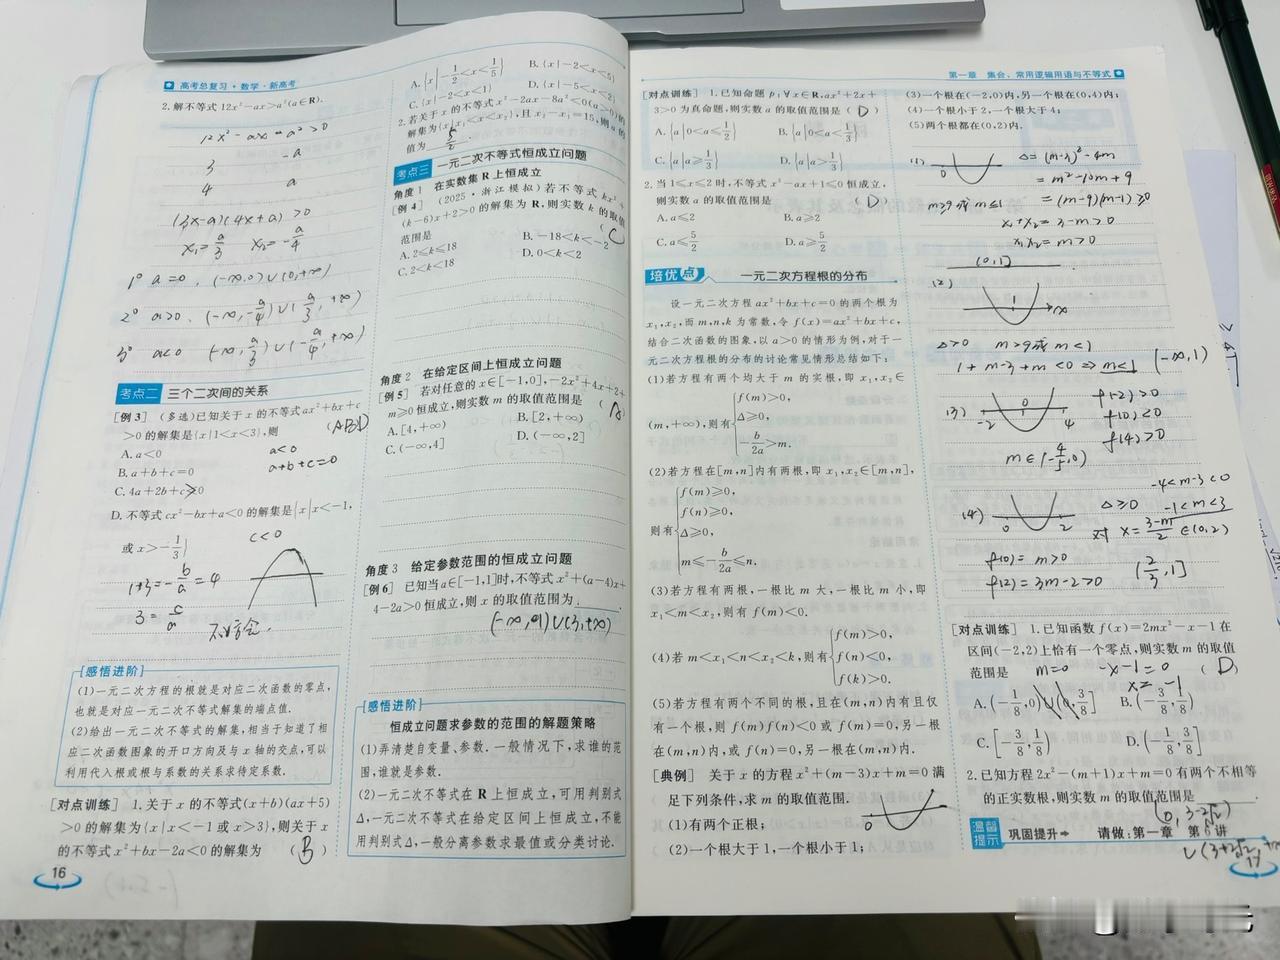 高考总复习·数学·新高考
2.解不等式12x²-ax>a²(a∈R).
12x²-ax-a²>0
3 -a
4 a
(3x-a)(4x+a)>0
x₁=a/3 x₂=-a/4
1° a=0, (-∞,0)∪(0,+∞)
2° a>0, (-∞,-a/4)∪(a/3,+∞)
3° a<0 (-∞,a/3)∪(-a/4,+∞)
考点二 三个二次间的关系
[例3] (多选)已知关于x的不等式ax²+bx+c
>0的解集是{x|1<x<3},则 (ABD)
A.a<0 a<0
B.a+b+c=0 a+b+c=0
C.4a+2b+c>0
D.不等式cx²-bx+a<0的解集是{x|x<-1,
或x>-1/3} c<0
1+3=-b/a=4
3=c/a
[感悟进阶]
(1)一元二次方程的根就是对应二次函数的零点,
也就是对应一元二次不等式解集的端点值.
(2)给出一元二次不等式的解集,相当于知道了相
应二次函数图象的开口方向及与x轴的交点,可以
利用代入根或根与系数的关系求待定系数.
[对点训练] 1.关于x的不等式(x+b)(ax+5)
>0的解集为{x|x<-1或x>3},则关于x
的不等式x²+bx-2a<0的解集为 (B)
16
A.{x|-1/2<x<1/5} B.{x|-2<x<5}
C.{x|-2<x<1} D.{x|-5<x<2}
2.若关于x的不等式x²-2ax-8a²<0(a>0)的
解集为{x|x₁<x<x₂},且x₂-x₁=15,则a的
值为 5/2 .
考点三 一元二次不等式恒成立问题
角度1 在实数集R上恒成立
[例4] (2025·浙江模拟)若不等式kx²+
(k-6)x+2>0的解集为R,则实数k的取值
范围是 (C)
A.2≤k≤18 B.-18<k<-2
C.2<k<18 D.0<k<2
角度2 在给定区间上恒成立问题
[例5] 若对任意的x∈[-1,0],-2x²+4x+2+
m≥0恒成立,则实数m的取值范围是 (A)
A.[4,+∞) B.[2,+∞)
C.(-∞,4] D.(-∞,2]
角度3 给定参数范围的恒成立问题
[例6] 已知当a∈[-1,1]时,不等式x²+(a-4)x+
4-2a>0恒成立,则x的取值范围为 .
(-∞,1)∪(3,+∞)
[感悟进阶]
恒成立问题求参数的范围的解题策略
(1)弄清楚自变量、参数.一般情况下,求谁的范
围,谁就是参数.
(2)一元二次不等式在R上恒成立,可用判别式
Δ,一元二次不等式在给定区间上恒成立,不能
用判别式Δ,一般分离参数求最值或分类讨论.
第一章 集合、常用逻辑用语与不等式
[对点训练] 1.已知命题p:∀x∈R,ax²+2x+
3>0为真命题,则实数a的取值范围是 (D)
A.{a|0<a≤1/2} B.{a|0<a<1/3}
C.{a|a≥1/3} D.{a|a>1/3}
2.当1≤x≤2时,不等式x²-ax+1≤0恒成立,
则实数a的取值范围是 (D)
A.a≤2 B.a≥2
C.a≤5/2 D.a≥5/2
培优点 一元二次方程根的分布
设一元二次方程ax²+bx+c=0的两个根为
x₁,x₂,而m,n,k为常数,令f(x)=ax²+bx+c,
结合二次函数的图象,以a>0的情形为例,对于一
元二次方程根的分布的讨论常见情形总结如下:
(1)若方程有两个均大于m的实根,即x₁,x₂∈
(m,+∞),则有{f(m)>0,
Δ≥0,
-b/2a>m.
(2)若方程在[m,n]内有两根,即x₁,x₂∈[m,n],
则有{f(m)≥0,
f(n)≥0,
Δ≥0,
m≤-b/2a≤n.
(3)若方程有两根,一根比m大,一根比m小,即
x₁<m<x₂,则有f(m)<0.
(4)若m<x₁<n<x₂<k,则有{f(m)>0,
f(n)<0,
f(k)>0.
(5)若方程有两个不同的根,且在(m,n)内有且仅
有一个根,则f(m)f(n)<0或f(m)=0,另一根
在(m,n)内,或f(n)=0,另一根在(m,n)内.
[典例] 关于x的方程x²+(m-3)x+m=0满
足下列条件,求m的取值范围.
(1)有两个正根; 0
(2)一个根大于1,一个根小于1;
(3)一个根在(-2,0)内,另一个根在(0,4)内;
(4)一个根小于2,一个根大于4;
(5)两个根都在(0,2)内.
(1) 0 Δ=(m-3)²-4m
=m²-10m+9
m≥9或m≤1 =(m-9)(m-1)≥0
x₁+x₂=3-m>0
x₁x₂=m>0
(0,1]
(2) 1 x
Δ>0 m>9或m<1
1+m-3+m<0⇒m<1 (-∞,1)
(3) -2 0 4 f(-2)>0
f(0)<0
f(4)>0
m∈(-4/5,0)
(4) 0 2 Δ≥0 -4<m-3<0
-1<m<3
对x=(3-m)/2∈(0,2)
f(0)=m>0
f(2)=3m-2>0 (2/3,1]
[对点训练] 1.已知函数f(x)=2mx²-x-1在
区间(-2,2)上恰有一个零点,则实数m的取值
范围是 m=0 -x-1=0 (D)
x=-1
A.(-1/8,0)∪(0,3/8] B.(-3/8,1/8)
C.[-3/8,1/8) D.(-1/8,3/8]
2.已知方程2x²-(m+1)x+m=0有两个不相等
的正实数根,则实数m的取值范围是 .
(0,3-2√2)
∪(3+2√2,+∞
温馨提示 巩固提升⇒ 请做:第一章 第6讲
17